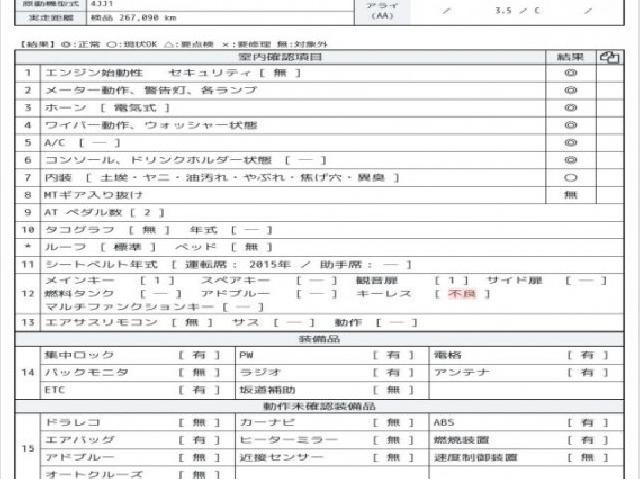 原動機型式 4JJ1
実走距離 検品 267,090 km
アライ (AA) / 3.5 / C /
【結果】 ◎:正常 ○:現状OK △:要点検 ×:要修理 無:対象外
室内確認項目 結果
1 エンジン始動性 セキュリティ [ 無 ] ◎
2 メーター動作、警告灯、各ランプ ◎
3 ホーン [ 電気式 ] ◎
4 ワイパー動作、ウォッシャー状態 ◎
5 A/C [ ― ] ◎
6 コンソール、ドリンクホルダー状態 [ ― ] ◎
7 内装 [ 土埃・ヤニ・油汚れ・やぶれ・焦げ穴・異臭 ] ○
8 MTギア入り抜け 無
9 AT ペダル数 [ 2 ]
10 タコグラフ [ 無 ] 年式 [ ― ]
* ルーフ [ 標準 ] ベッド [ 無 ]
11 シートベルト年式 [ 運転席: 2015年 / 助手席: ― ]
メインキー [ 1 ] スペアキー [ ― ] 観音扉 [ 1 ] サイド扉 [ ― ]
12 燃料タンク [ ― ] アドブルー [ ― ] キーレス [ 不良 ]
マルチファンクションキー [ ― ]
13 エアサスリモコン [ 無 ] サス [ ― ] 動作 [ ― ]
装備品
集中ロック [ 有 ] PW [ 有 ] 電格 [ 有 ]
14 バックモニタ [ 無 ] ラジオ [ 有 ] アンテナ [ 有 ]
ETC [ 有 ] 坂道補助 [ 無 ]
動作未確認装備品
ドラレコ [ 無 ] カーナビ [ 無 ] ABS [ 有 ]
15 エアバッグ [ 有 ] ヒーターミラー [ 無 ] 燃焼装置 [ 有 ]
アドブルー [ 無 ] 近接センサー [ 無 ] 速度制御装置 [ 無 ]
オートクルーズ [ 無 ]